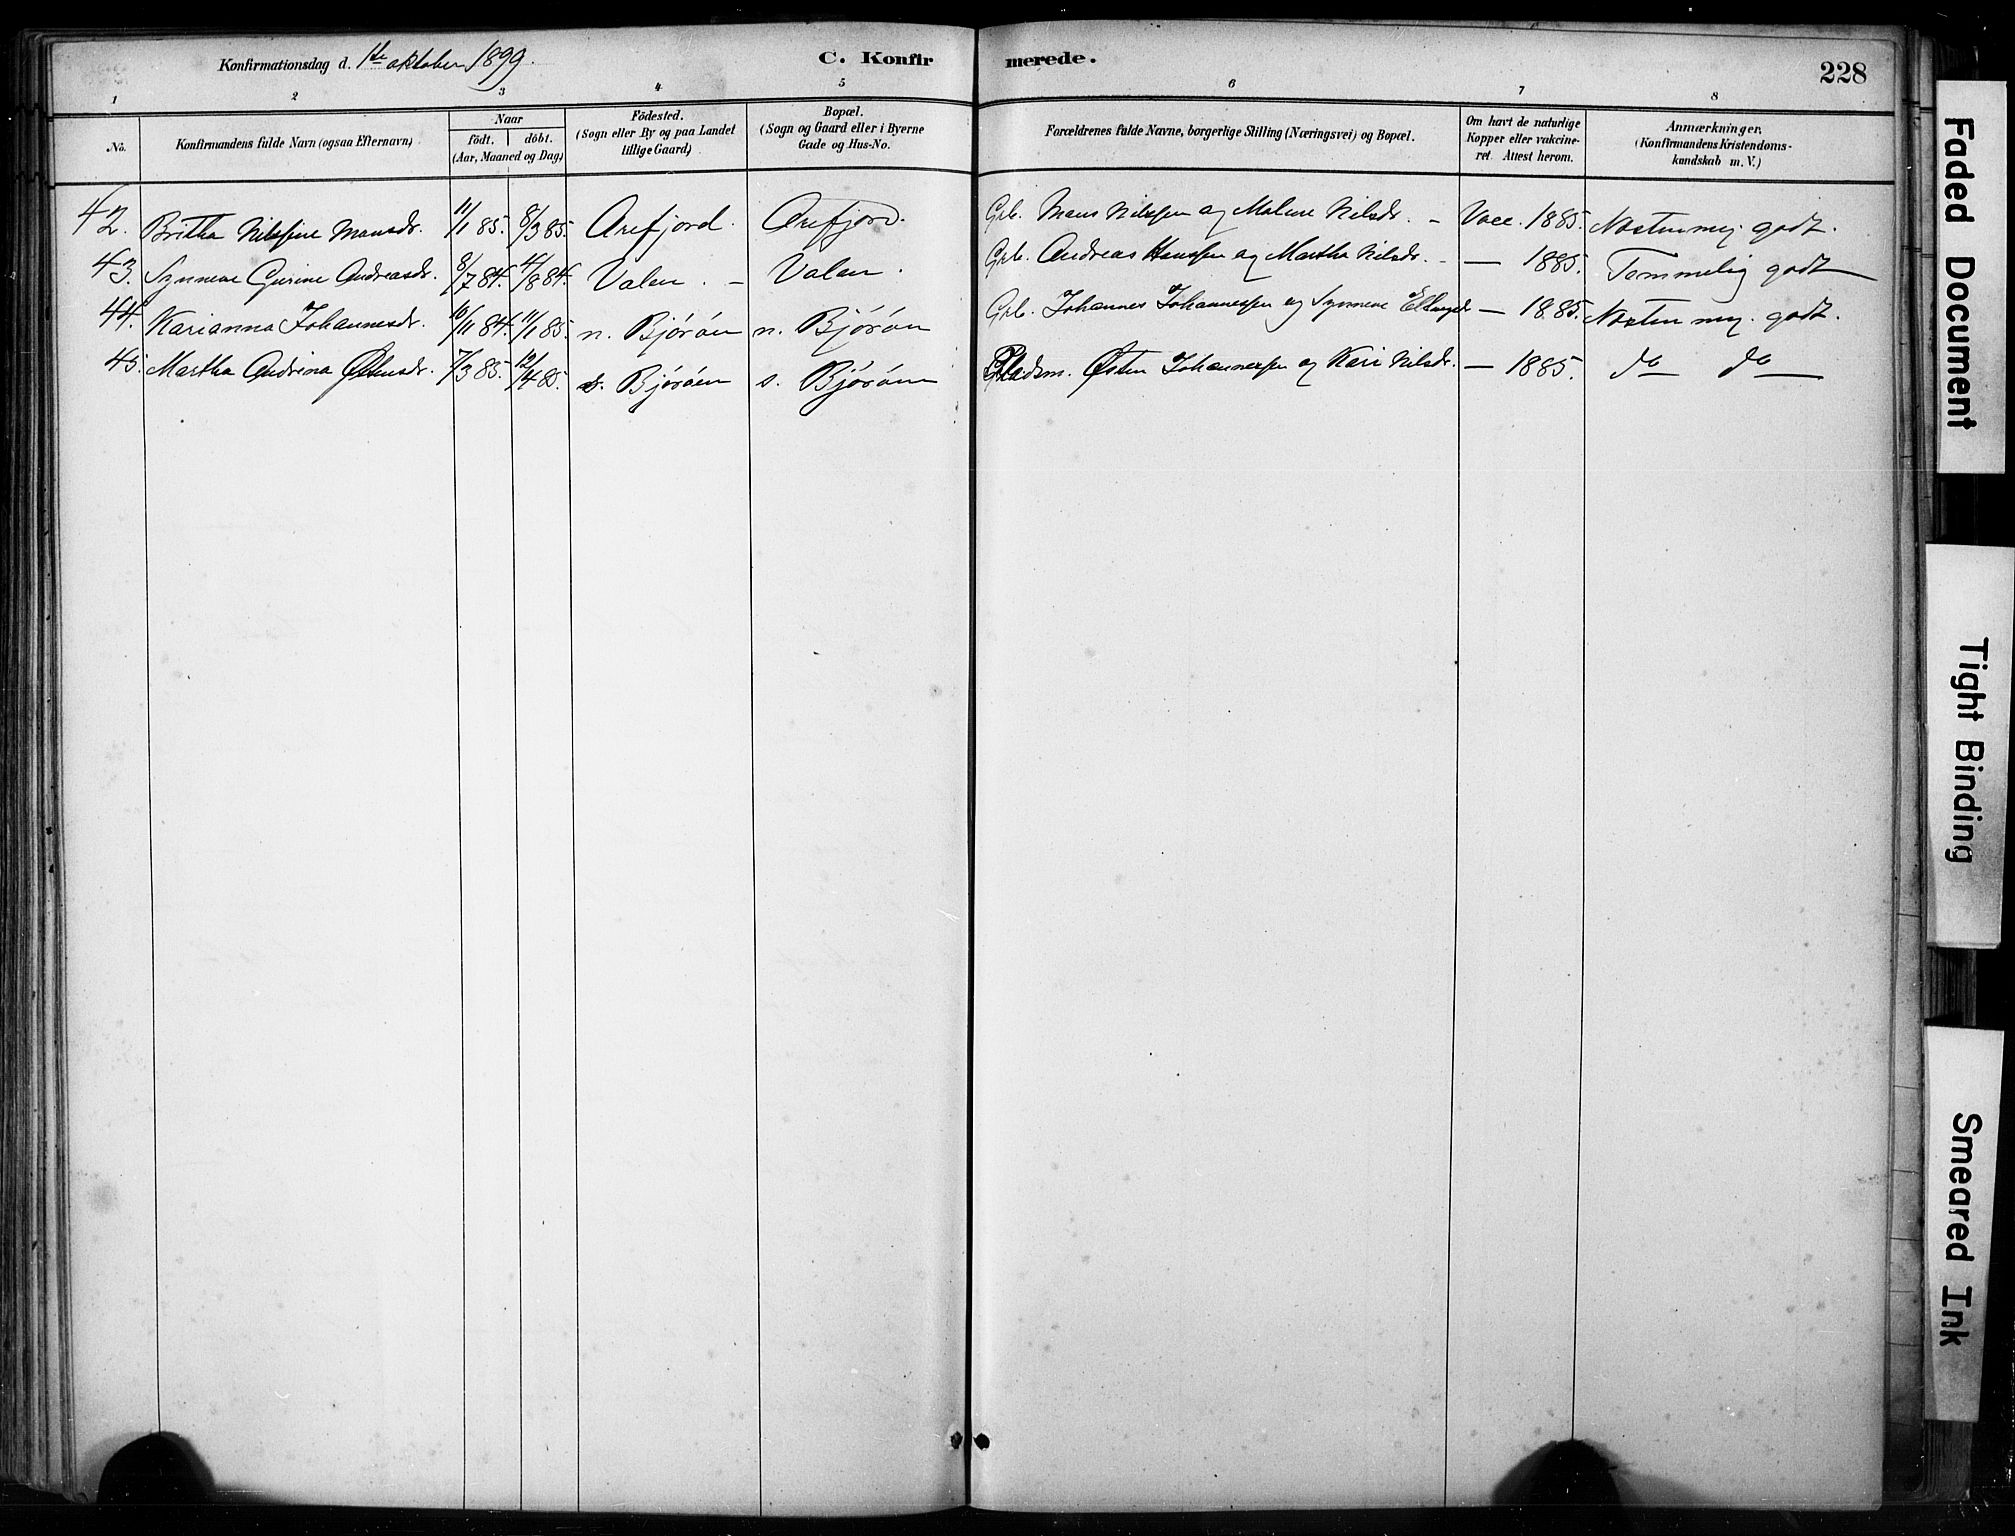 Konfirmationsdag d. 1ste oktober 1899.
C. Konfirmerede.
228
1 2 3 4 5 6 7 8
No.
Konfirmandens fulde Navn (ogsaa Efternavn)
Naar
födt. döbt.
(Aar, Maaned og Dag)
Födested.
(Sogn eller By og paa Landet
tillige Gaard)
Bopæl.
(Sogn og Gaard eller i Byerne
Gade og Hus-No.
Forældrenes fulde Navne, borgerlige Stilling (Næringsvei) og Bopæl.
Om havt de naturlige
Kopper eller vakcine-
ret. Attest herom.
Anmærkninger.
(Konfirmandens Kristendoms-
kundskab m. V.)
42. Britha Nilsine Monsdr. 11/1 85. 8/3 85. Arefjord. Arefjord. Grb. Mons Nilssen og Malene Nilsdr. - Vacc. 1885. Næsten mg. godt.
43. Synneve Gurine Andreasdr. 8/7 84. 4/8 84. Valen. - Valen. Grb. Andreas Hanssen og Martha Nilsdr. - — 1885. Temmelig godt
44. Karianna Johannesdr. 16/11 84. 11/1 85. n. Bjørøen n. Bjørøen Grb. Johannes Johannessen og Synneve Ellingsdr — 1885. Næsten mg. godt.
45. Martha Andrina Østensdr. 7/3 85. 12/4 85. s. Bjørøen s. Bjørøen Pladsm. Østen Johannessen og Kari Nilsdr. — 1885. do do
Faded Document
Tight Binding
Smeared Ink